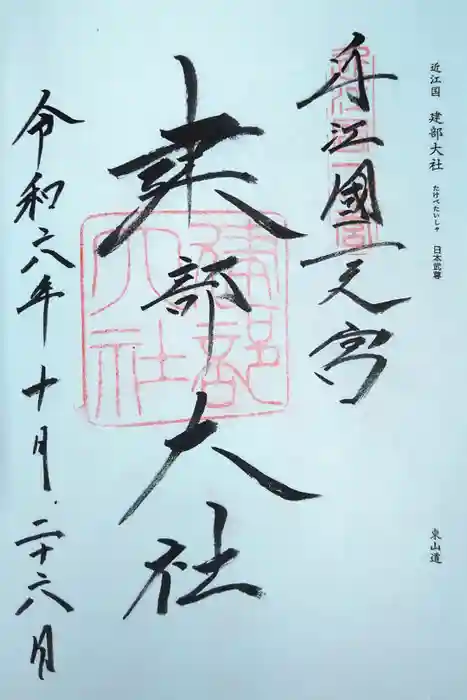 近江国　建部大社　たけべたいしゃ　日本武尊
東山道
近江國一之宮
建部大社
建部
大社
令和六年十月二十六日